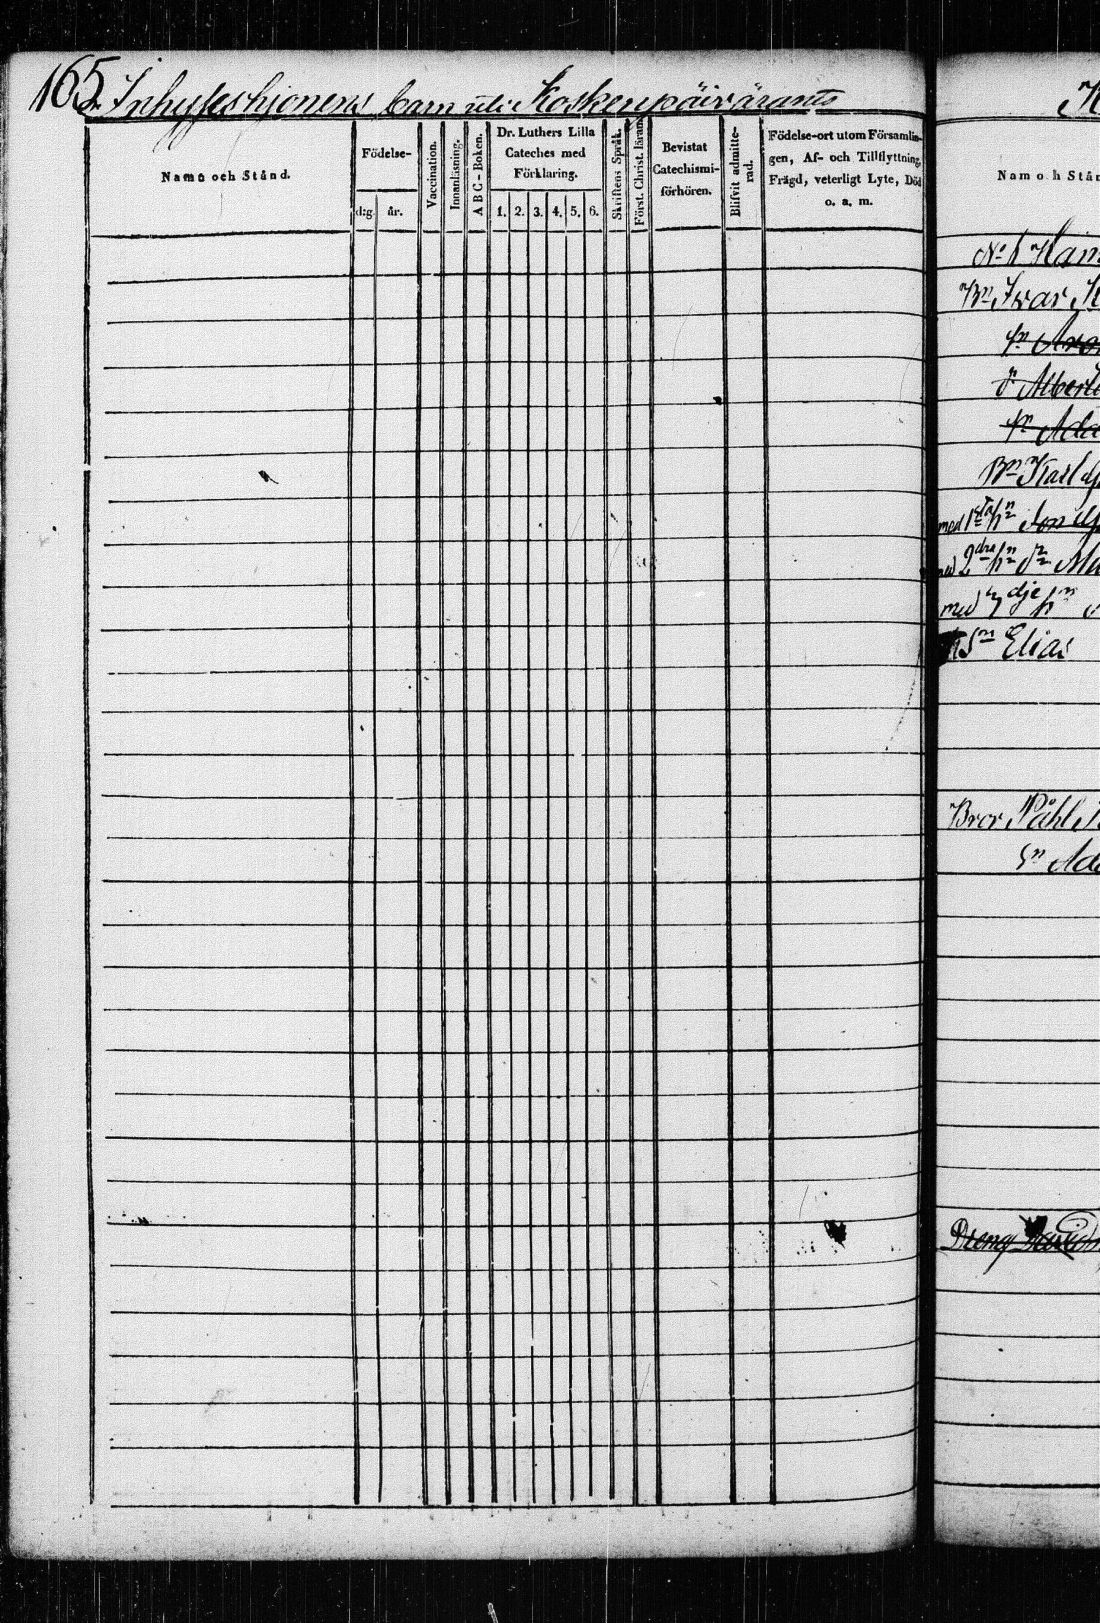 165
Inhyseshjonens barn uti Koskenpäiväranta
Namn och Stånd.
Födelse-
dag.
år.
Vaccination.
Innanläsning.
A B C - Boken.
Dr. Luthers Lilla
Cateches med
Förklaring.
1. 2. 3. 4. 5. 6.
Skriftens Språk.
Först. Christ. läran.
Bevistat
Catechismi-
förhören.
Blifvit admitte-
rad.
Födelse-ort utom Församlin-
gen, Af- och Tillflyttning,
Frägd, veterligt Lyte, Död
o. a. m.
Nam o h Stån
Bn Ivar
dr Albert
Bn Karl
med 1sta hn Son
med 2dra hn dr Ma
med 3dje hn
Sn Elias
Bror Påhl
Sn Ada
Dreng